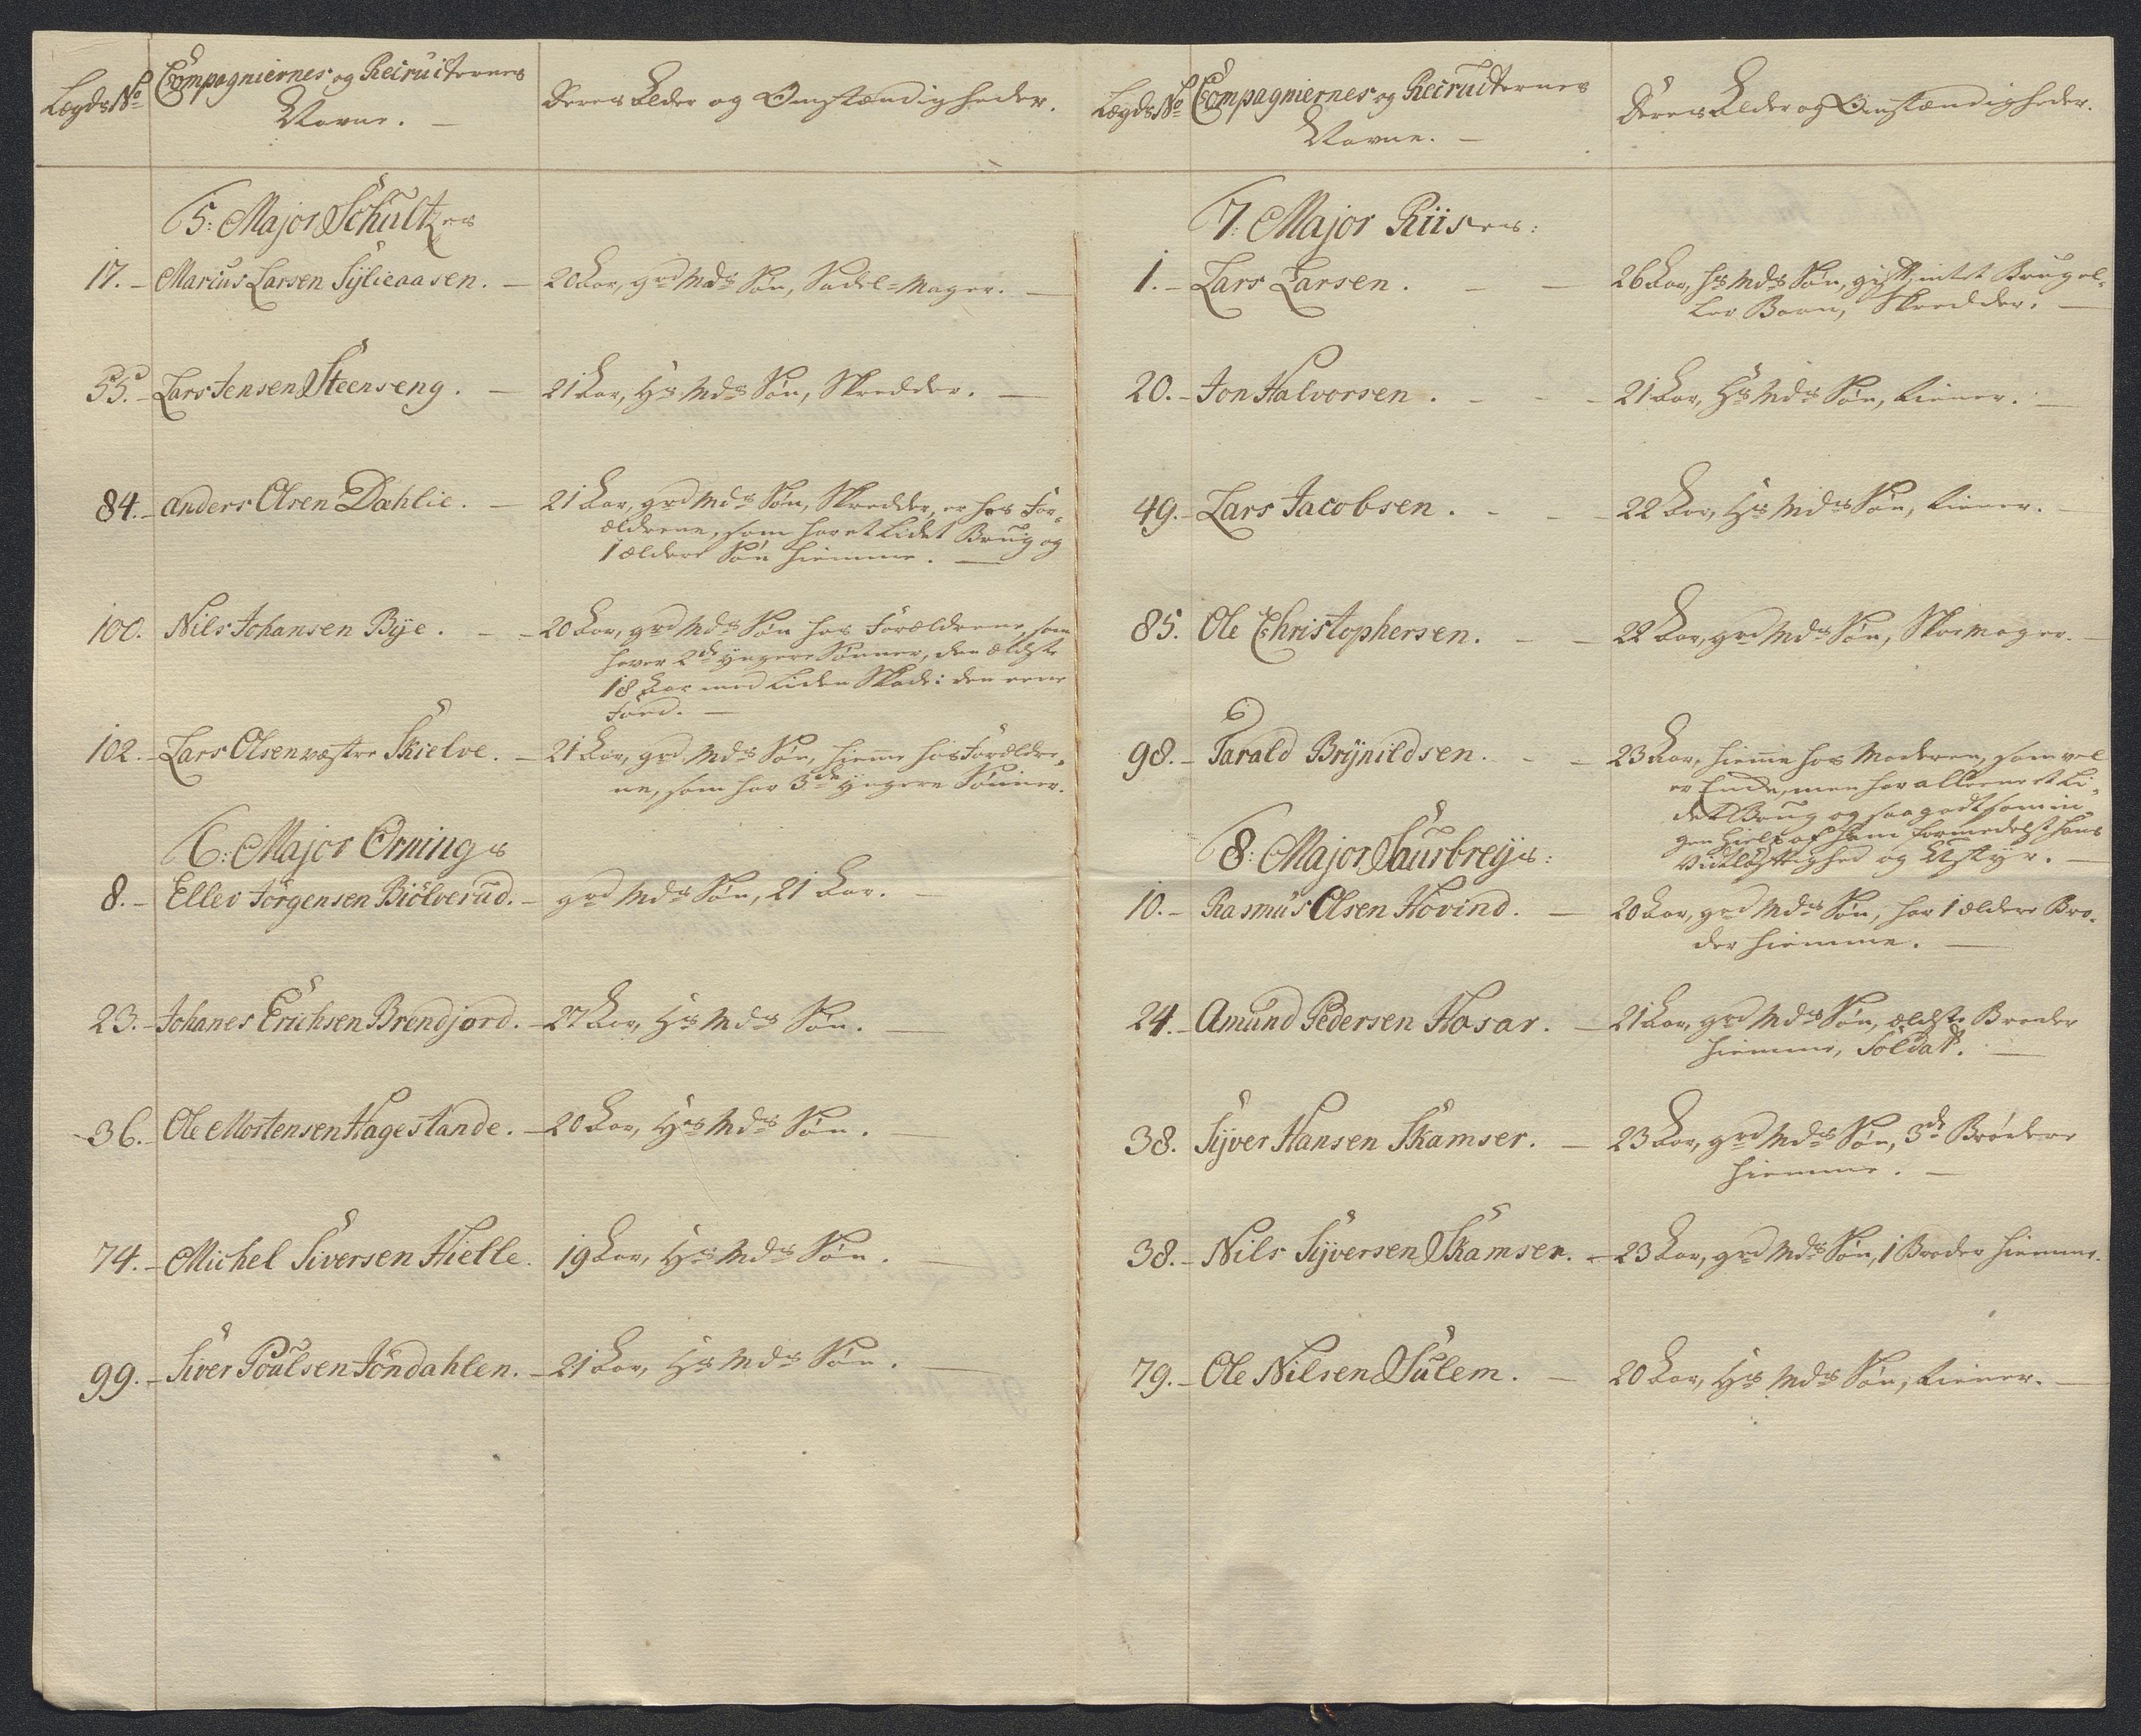 Lægds No
Compagniernes og Recruternes
Navne. —
Deres Alder og Omstændigheder.
5: Major Schultzes
17. – Marius Larsen Sylieaasen. — 20 Aar, grd Mds Søn, Sadel=Mager. —
55. – Lars Jensen Steenseng. — 21 Aar, Hs Mds Søn, Skredder. —
84. – Anders Olsen Dæhlie. — 21 Aar, grd Mds Søn, Skredder, er hos For-
ældrene, som har et lidet Brug og
1 ældere Søn hiemme. —
100. Nils Johansen Bye. – – 20 Aar, grd Mds Søn hos Forældrene, som
haver 2de yngere Sønner, den ældste
18 Aar med liden Skade i den eene
Foed. —
102. – Lars Olsen væstre Skielve. – 21 Aar, grd Mds Søn, hieme hos Forældre-
ne, som har 3de yngere Sønner.
6: Major Ornings
8. – Ellev Jörgensen Biölverud. – grd Mds Søn, 21 Aar. —
23. – Johanes Erichsen Brendjord. – 27 Aar, Hs Mds Søn. —
36. – Ole Mortensen Hagestande. – 20 Aar, Hs Mds Søn. —
74. – Michel Siversen Hielle. 19 Aar, Hs Mds Søn. —
99. – Siver Poulsen Jöndahlen. – 21 Aar, Hs Mds Søn. —
Lægds No
Compagniernes og Recruternes
Navne. —
Deres Alder og Omstændigheder.
7: Major Riises:
1. – Lars Larsen. — — 26 Aar, Hs Mds Søn, gift, intet Brug el-
ler Barn, Skredder. —
20. – Jon Halvorsen. – – – 21 Aar, Hs Mds Søn, tiener. —
49. – Lars Jacobsen. – – – 22 Aar, Hs Mds Søn, tiener. —
85. Ole Christophersen. – – 22 Aar, grd Mds Søn, Skoemager. —
98. – Tarald Brynildsen. – – 23 Aar, hieme hos Moderen, som vel
er Enke, men har alleene et li-
det Brug og saa godt som in-
gen Hielp af ham formedelst hans
Vidtløftighed og Udstyr. —
8: Major Saurbreys:
10. – Rasmus Olsen Hovind. — 20 Aar, grd Mds Søn, har 1 ældere Bro-
der hiemme. —
24. – Amund Pedersen Hosar. – 21 Aar, grd Mds Søn, ældste Broder
hiemme, Soldat. —
38. Syver Hansen Skamser. – 23 Aar, grd Mds Søn, 3de Brødere
hiemme. —
38. – Nils Syversen Skamser. – 23 Aar, grd Mds Søn, 1 Broder hiemme.
79. – Ole Nilsen Sulem. — 20 Aar, Hs Mds Søn, tiener. —